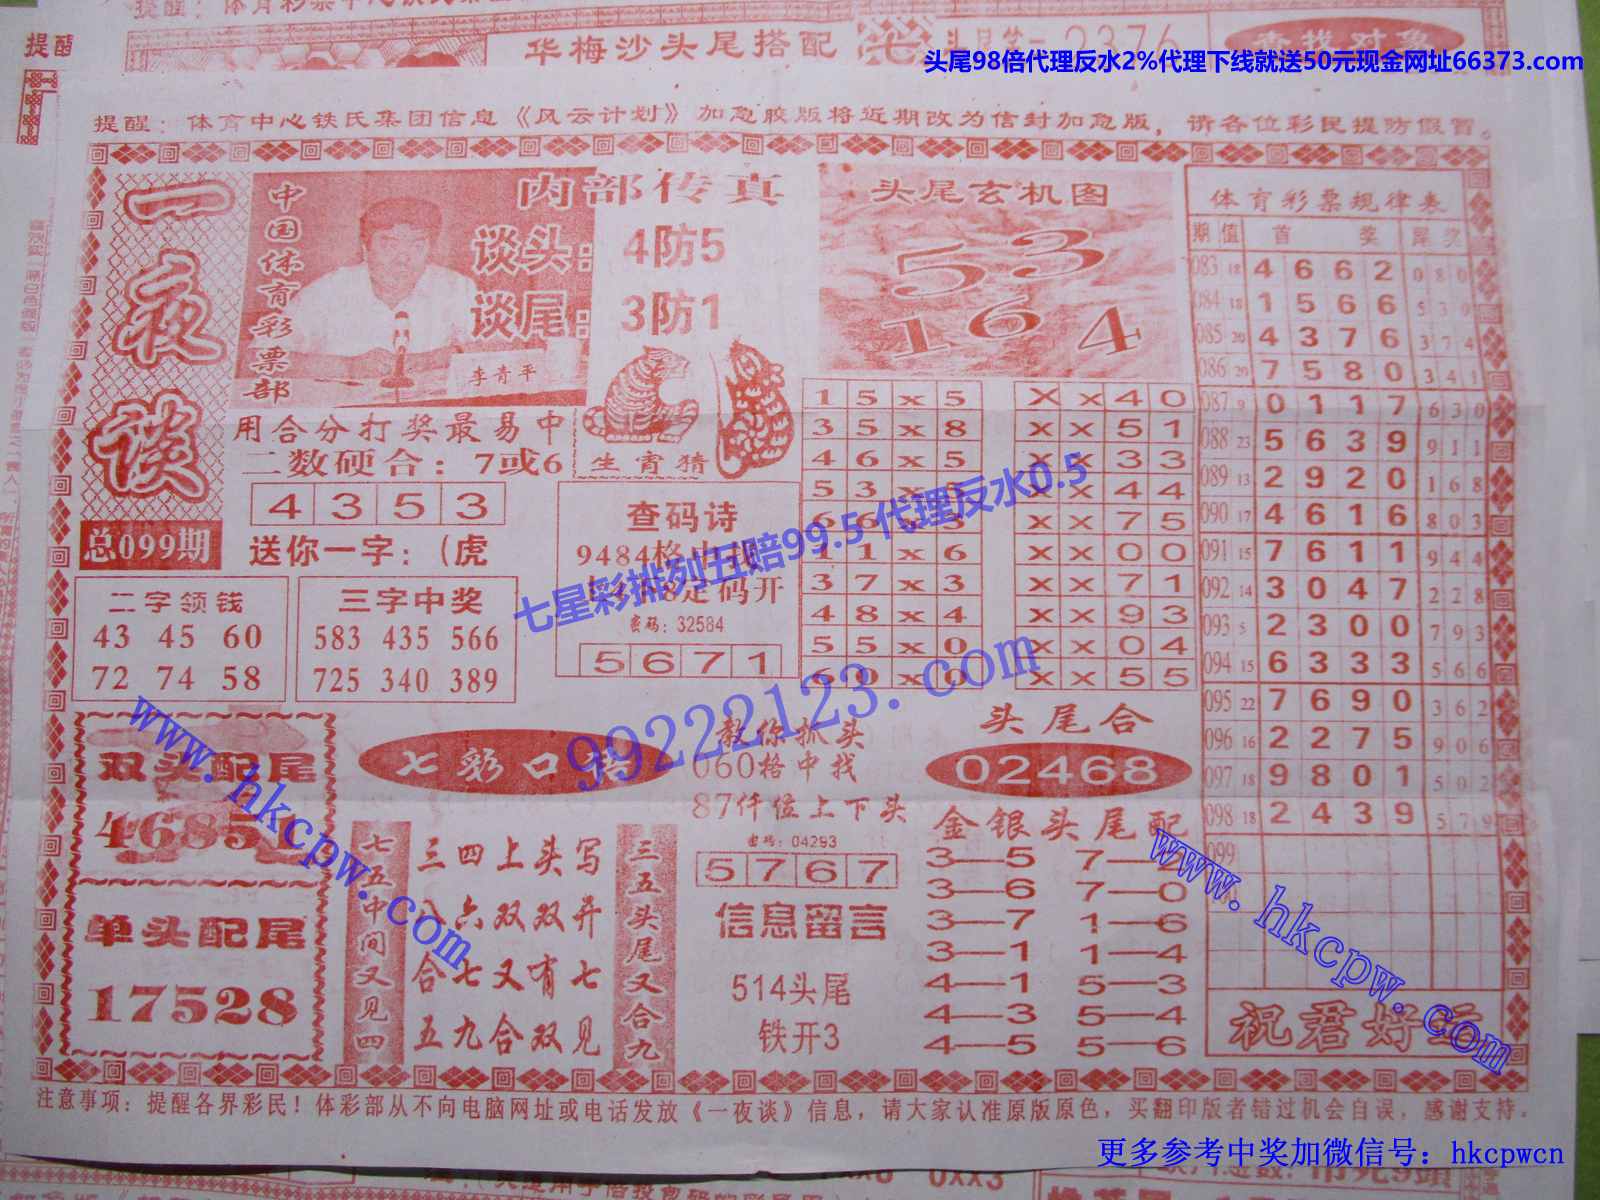 华梅沙头尾搭配
头尾98倍代理反水2%代理下线就送50元现金网址66373.com
提醒：体育中心铁氏集团信息《风云计划》加急胶版将近期改为信封加急版，请各位彩民提防假冒。
一夜谈
总099期
中国体育彩票部
内部传真
谈头：4防5
谈尾：3防1
李青平
用合分打奖最易中
二数硬合：7或6
4 3 5 3
送你一字：(虎
生肖猜
头尾玄机图
53
164
二字领钱
43 45 60
72 74 58
三字中奖
583 435 566
725 340 389
查码诗
密码：32584
5 6 7 1
1 5 x 5
3 5 x 8
4 6 x 5
3 7 x 3
4 8 x 4
5 5 x 0
X x 4 0
x x 5 1
x x 3 3
x x 4 4
x x 7 5
x x 0 0
x x 7 1
x x 9 3
x x 0 4
x x 5 5
七星彩排列五赔99.5 代理反水0.5
99222123.com
www.hkcpw.com
双头配尾
单头配尾
17528
七五中间又见四
三四上头写
八六双双开
合七又有七
五九合双见
三五头尾又合九
教你抓头
060格中找
87仟位上下头
密码：04293
5 7 6 7
信息留言
514头尾
铁开3
头尾合
02468
金银头尾配
3—5 7—2
3—6 7—0
3—7 1—6
3—1 1—4
4—1 5—3
4—3 5—4
4—5 5—6
www.hkcpw.com
体育彩票规律表
期 值 首 奖 尾 奖
083 18 4 6 6 2 0 8 0
084 18 1 5 6 6 5 3 9
085 20 4 3 7 6 3 7 4
086 20 7 5 8 0 3 4 1
087 9 0 1 1 7 6 3 0
088 23 5 6 3 9 9 1 1
089 13 2 9 2 0 1 6 8
090 17 4 6 1 6 8 0 3
091 15 7 6 1 1 9 4 4
092 14 3 0 4 7 2 2 8
093 5 2 3 0 0 7 9 3
094 15 6 3 3 3 5 6 6
095 22 7 6 9 0 3 6 2
096 16 2 2 7 5 9 0 6
097 18 9 8 0 1 5 0 2
098 18 2 4 3 9 5 7 9
099
注意事项：提醒各界彩民！体彩部从不向电脑网址或电话发放《一夜谈》信息，请大家认准原版原色，买翻印版者错过机会自误，感谢支持。
更多参考中奖加微信号：hkcpwcn